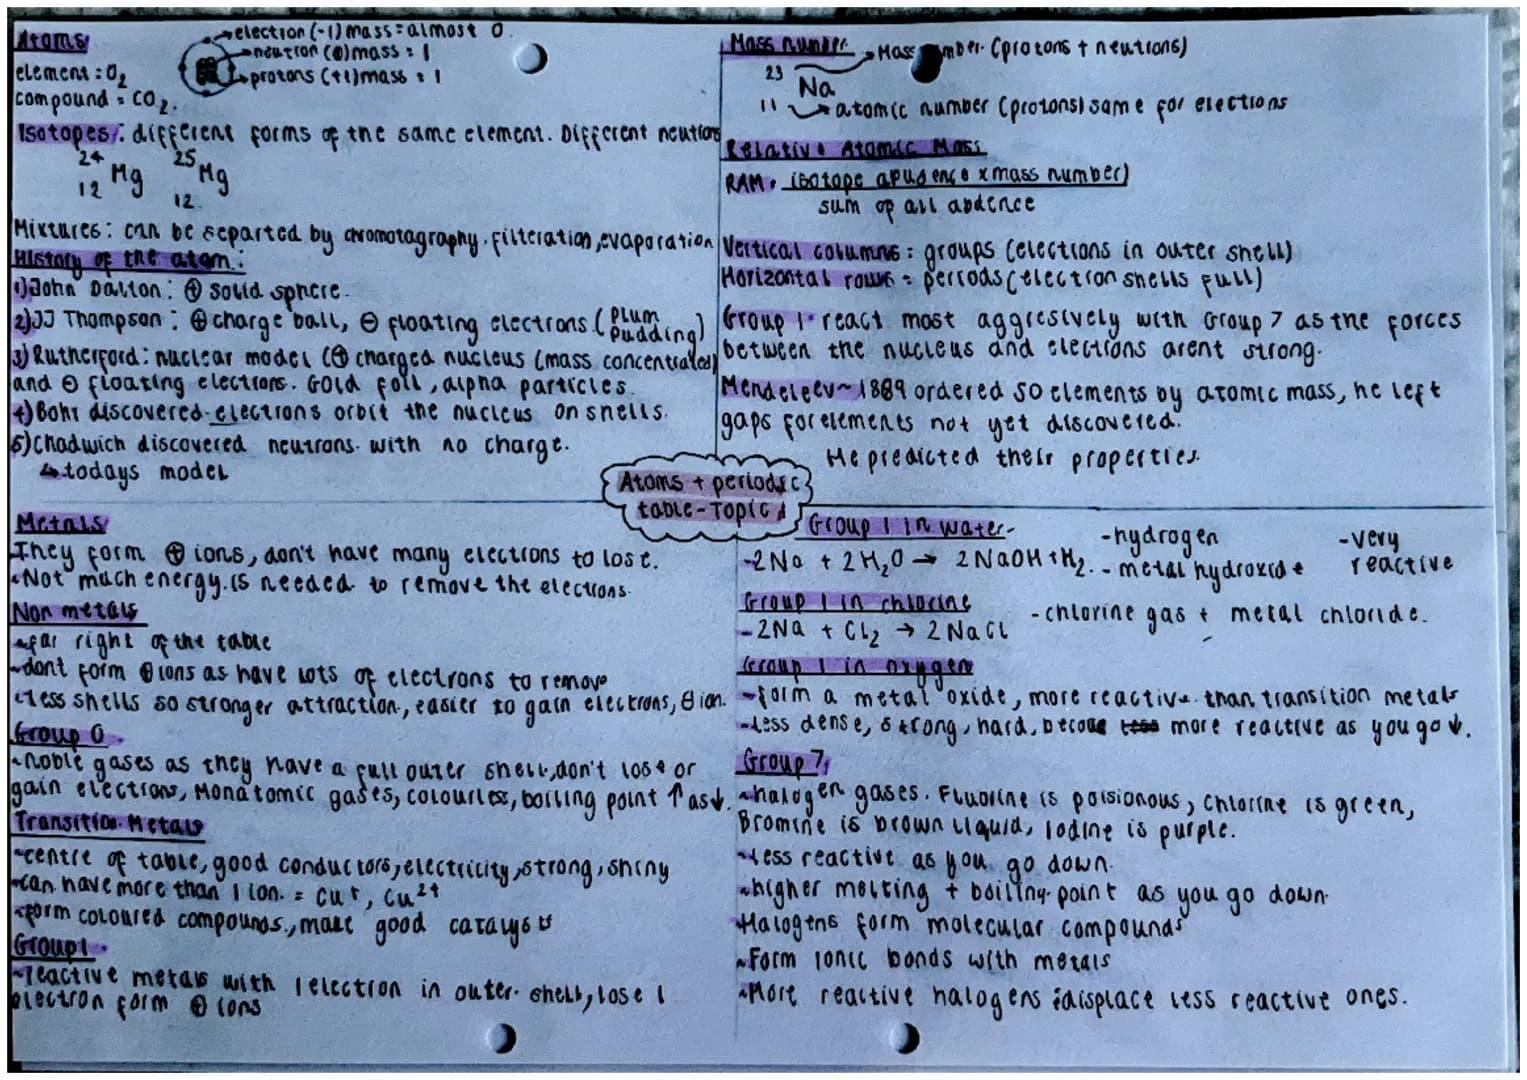 Atoms
electron (-1) mass = almost 0.
neutron (0) mass = 1
protons (+1) mass = 1
element : O2
compound = CO2.
Isotopes: different forms of the same element. Different neutrons
24 Mg 25 Mg
12 12
Mixtures: can be separted by chromotagraphy, filteration, evaporation
History of the atom:
1) John Dalton: ⊕ solid sphere.
2) JJ Thompson: ⊕ charge ball, ⊖ floating electrons (Plum Pudding)
3) Rutherford: nuclear model (⊕ charged nucleus (mass concentrated)
and ⊖ floating electrons. Gold foil, alpha particles.
4) Bohr discovered electrons orbit the nucleus on shells.
5) Chadwich discovered neutrons with no charge.
↳ todays model
Mass number
→ Mass number (protons + neutrons)
23
Na
11 → atomic number (protons) same for electrons
Relative Atomic Mass
RAM = isotope apudence x mass number)
sum of all abdence
Vertical columns = groups (electrons in outer shell)
Horizontal rows = periods (electron shells full)
Group 1 - react most aggresively with Group 7 as the forces
between the nucleus and electrons arent strong.
Mendeleev ~ 1869 ordered 50 elements by atomic mass, he left
gaps for elements not yet discovered.
He predicted their properties.
Atoms + periodic
table - Topic 1
Metals
They form ⊕ ions, don't have many electrons to lose.
~Not much energy is needed to remove the electrons.
Non metals
~far right of the table
~dont form ⊕ ions as have lots of electrons to remove
~less shells so stronger attraction, easier to gain electrons, ⊖ ion.
Group 0
~noble gases as they have a full outer shell, don't lose or
gain electrons, Monatomic gases, colourless, boiling point ↑ as ↓.
Transition Metals
~centre of table, good conductors, electricity, strong, shiny
~can have more than 1 ion. = Cu+, Cu2+
~form coloured compounds, make good catalysts
Group 1
~reactive metals with 1 electron in outer shell, lose 1
electron form ⊕ ions
Group 1 in water
-2Na + 2H2O → 2NaOH + H2.
-hydrogen
- metal hydroxide
-very
reactive
Group 1 in chlorine
-2Na + Cl2 → 2NaCl
-chlorine gas + metal chloride.
Group 1 in oxygen
-form a metal oxide, more reactive than transition metals
-less dense, strong, hard, become less more reactive as you go ↓.
Group 7
~halogen gases. Fluorine is poisionous, chlorine is green,
Bromine is brown liquid, Iodine is purple.
~less reactive as you go down.
~higher melting + boiling point as you go down
~Halogens form molecular compounds
~Form ionic bonds with metals
~More reactive halogens displace less reactive ones.